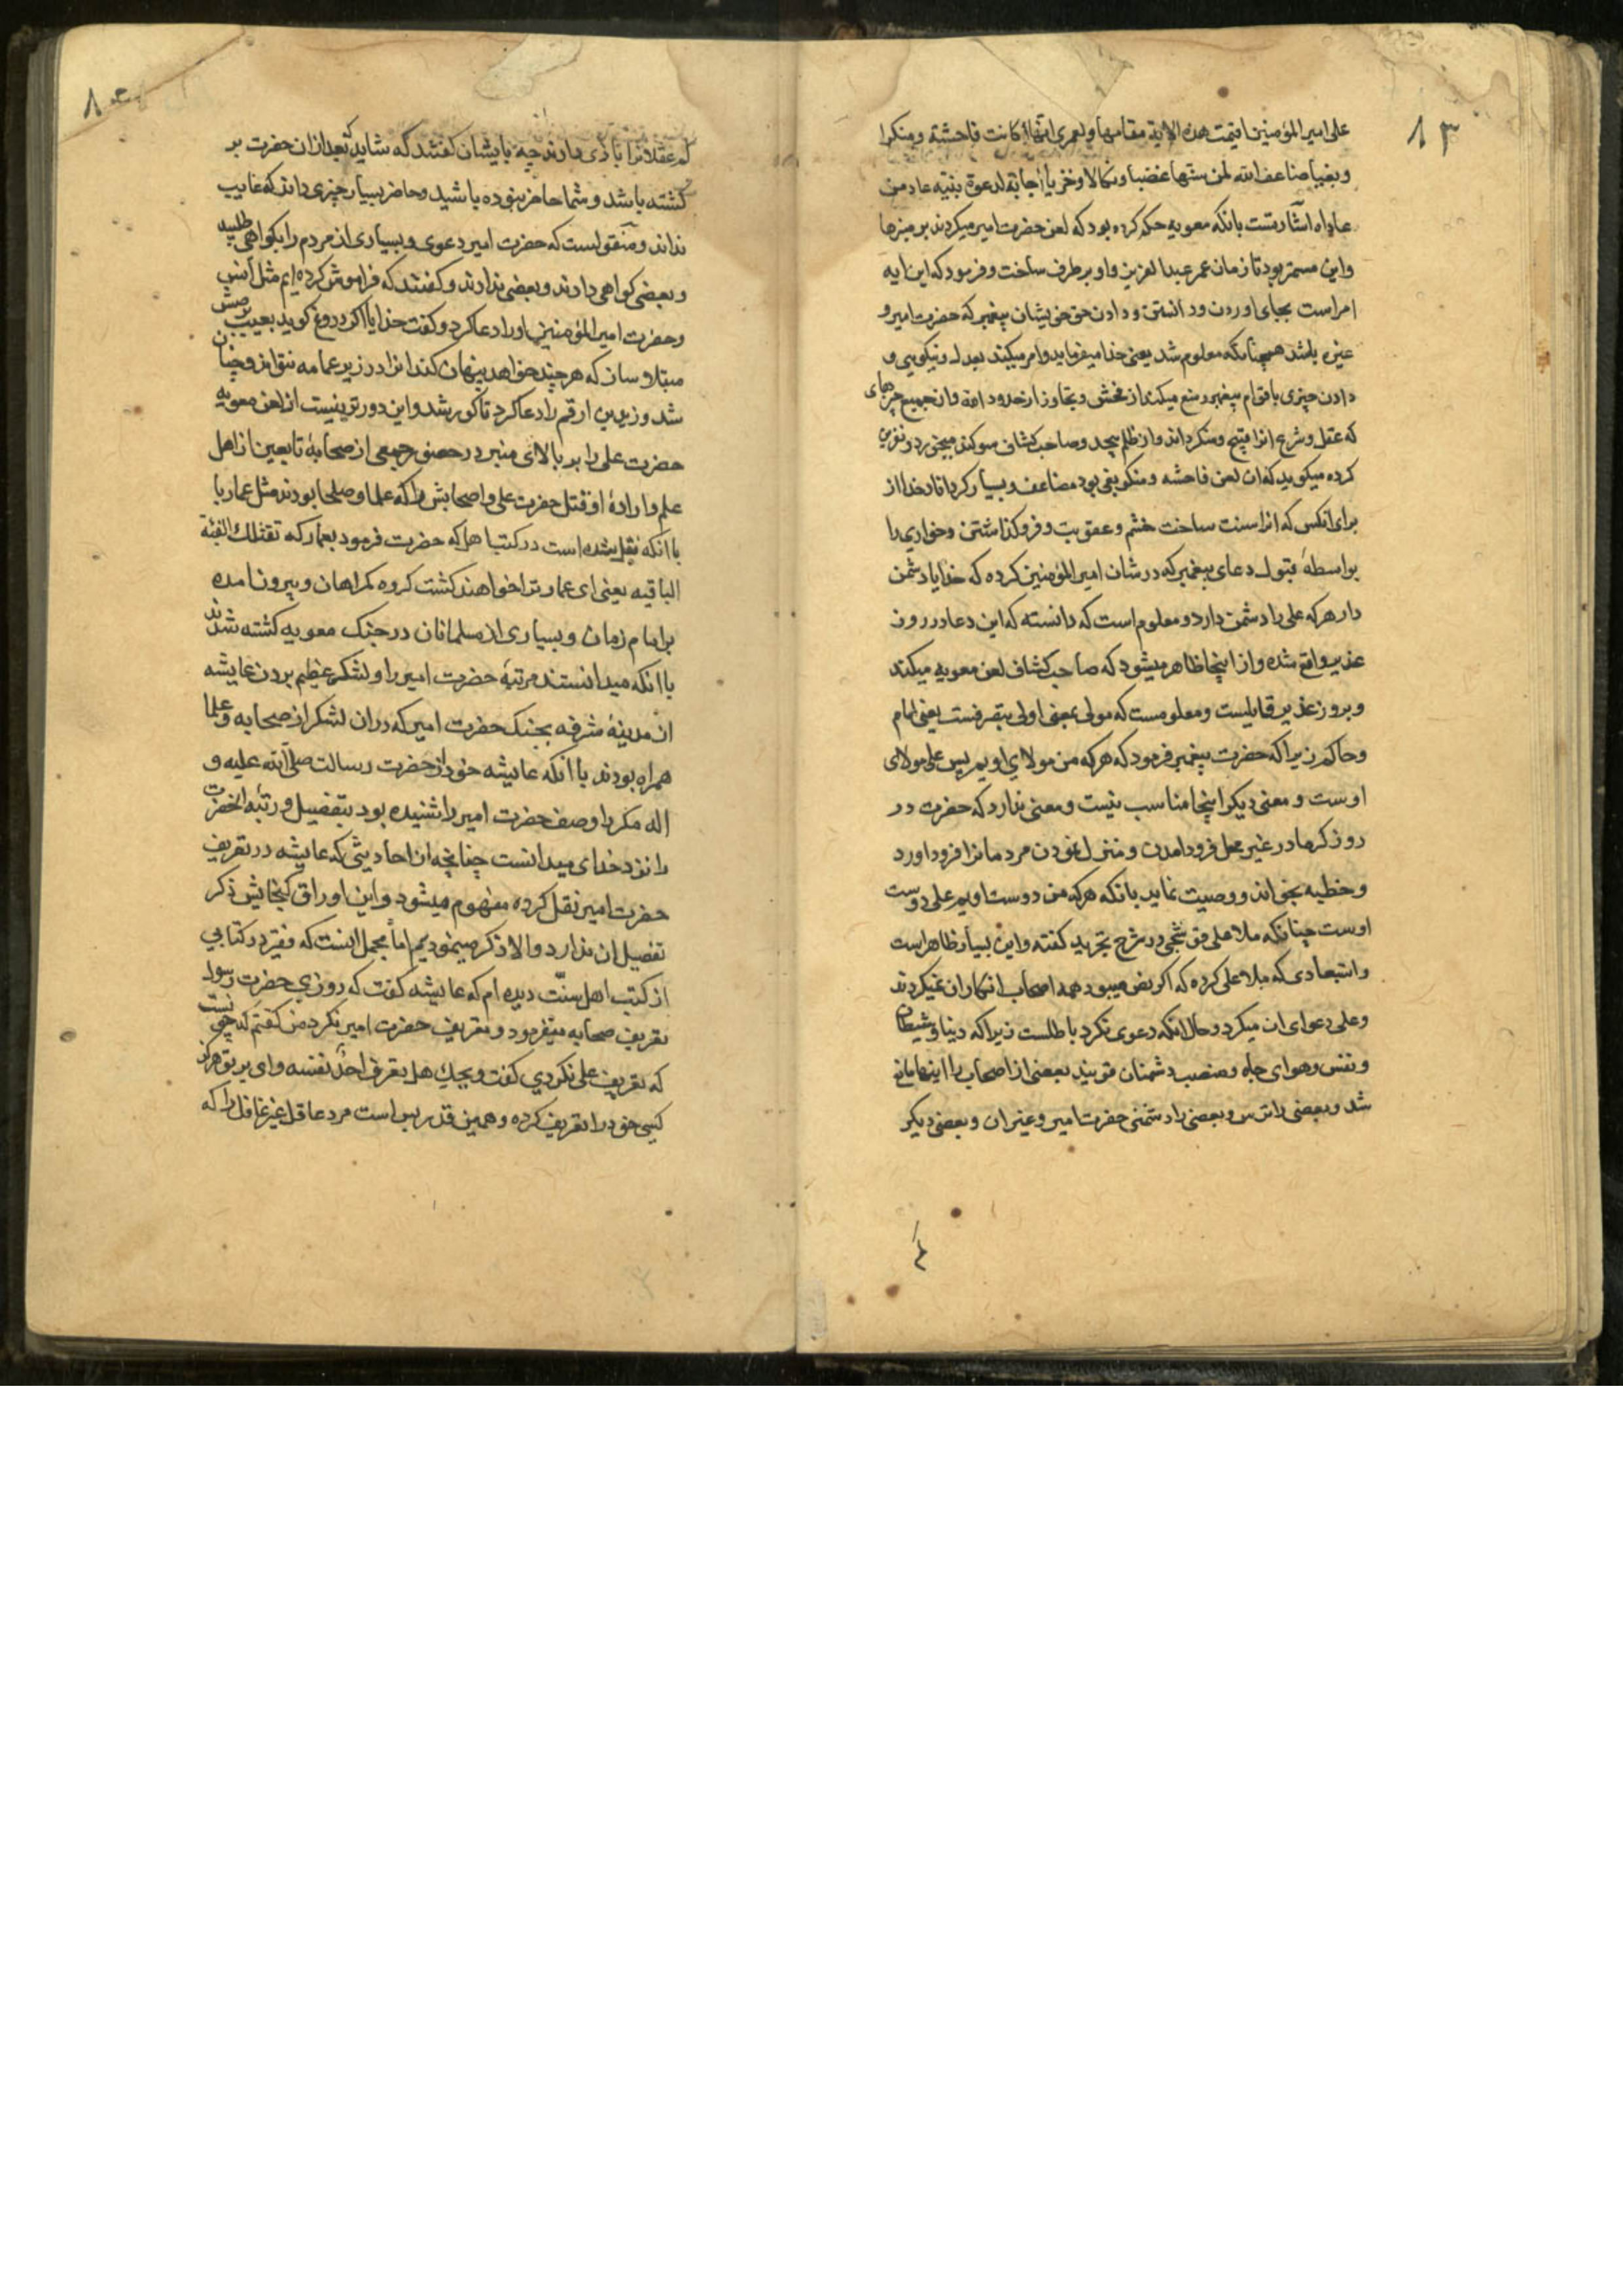 ۱۳
علی امیر المؤمنین اقیمت هذه الایة مقامها ولعمری انها کانت فاحشة ومنکرا
وبغیا ضاعف الله لمن سنها غضبا ونکالا وخزیا اجابة لدعوة بنیه عاد من
عاداه اشارتست بانکه معویه حکم کرده بود که لعن حضرت امیر میکردند بر منبرها
واین مستمر بود تا زمان عمر عبد العزیز واو بر طرف ساخت وفرمود که این ایه
امر است بجای اوردن ودانستن ودادن حق خویشان پیغمبر که حضرت امیر و
غیره باشد همچنانکه معلوم شد یعنی خدا میفرماید وامر میکند بعدل ونیکویی و
دادن چیزی باقوام پیغمبر ومنع میکند از فحش وتجاوز از حدود الله وان جمیع چیزهای
که عقل وشرع انرا قبیح ومنکر داند واز ظلم بیحد وصاحب کشاف سوکند میخورد ونفرین
کرده میکوید که ان لعن فاحشه ومنکر وبغی بود مضاعف وبسیار کرداناد خدا از
برای انکس که انرا سنت ساخت خشم وعقوبت وفرو کذاشتن وخواری را
بواسطهٔ قبول دعای پیغمبر که در شان امیر المؤمنین کرده که خدایا دشمن
دار هر که علی را دشمن دارد ومعلوم است که دانسته که این دعا در روز
غدیر واقع شده واز اینجا ظاهر میشود که صاحب کشاف لعن معویه میکند
وبروز غدیر قایلیست ومعلومست که مولی بمعنی اولی بتصرفست یعنی امام
وحاکم زیرا که حضرت پیغمبر فرمود که هر که من مولای اویم پس علی مولای
اوست ومعنی دیکر اینجا مناسب نیست ومعنی ندارد که حضرت در
روز کرما در غیر محل فرود امدن ومنزل نمودن مردمانرا فرود اورد
وخطبه بخواند ووصیت نماید بانکه هر که من دوست اویم علی دوست
اوست چنانکه ملا علی قوشجی در شرح تجرید کفته واین بسیار ظاهر است
واستبعادی که ملا علی کرده که اکر نص میبود همه اصحاب انکار ان نمیکردند
وعلی دعوای ان میکرد وحال انکه دعوی نکرد باطلست زیرا که دنیا وشیطان
ونفس وهوای جاه ومنصب دشمنان قویند بعضی از اصحاب را اینها مانع
شد وبعضی را ترس وبعضی را دشمنی حضرت امیر وغیر ان وبعضی دیکر
که عقلا بازی دارند چه بایشان کفتند که شاید که بعد از ان حضرت بر
کشته باشد وشما حاضر نبوده باشید وحاضر بسیار چیزی داند که غایب
نداند ومنقولست که حضرت امیر دعوی وبسیاری از مردم را بکواهی طلبید
وبعضی کواهی دادند وبعضی ندادند وکفتند که فراموش کرده ایم مثل انس
وحضرت امیر المؤمنین او را دعا کرد وکفت خدایا اکر دروغ کوید بعیب برصش
مبتلا ساز که هر چند خواهد پنهان کند انرا در زیر عمامه نتواند وچنان
شد وزید بن ارقم را دعا کرد تا کور شد واین دورتر نیست از لعن معویه
حضرت علی را بر بالای منبر در حضور جمعی از صحابهٔ تابعین از اهل
علم وارادهٔ او قتل حضرت علی واصحابش را که علما وصلحا بودند مثل عمار با
با انکه نقل شده است در کتبها که حضرت فرمود بعمار که تقتلک الفئة
الباقیه یعنی ای عمار ترا خواهند کشت کروه کمراهان وبیرون امده
بر امام زمان وبسیاری از مسلمانان در جنک معویه کشته شدند
با انکه میدانستند مرتبهٔ حضرت امیر را ولشکر عظیم بردن عایشه
از مدینهٔ مشرفه بجنک حضرت امیر که در ان لشکر از صحابه وعلما
همراه بودند با انکه عایشه خود از حضرت رسالت صلی الله علیه و
اله مکررا وصف حضرت امیر را شنیده بود بتفصیل ورتبه انحضرت
را نزد خدای میدانست چنانچه از احادیثی که عایشه در تعریف
حضرت امیر نقل کرده مفهوم میشود واین اوراق کنجایش ذکر
تفصیل ان ندارد والا ذکر مینمودیم اما مجمل اینست که فقیر در کتابی
از کتب اهل سنت دیده ام که عایشه کفت که روزی حضرت رسول
تعریف صحابه میفرمود وتعریف حضرت امیر نکرد من کفتم که چونست
که تعریف علی نکردی کفت ویحک هل یعرف احد نفسه وای بر تو هرکز
کسی خود را تعریف کرده وهمین قدر بس است مرد عاقل غیر غافل را که